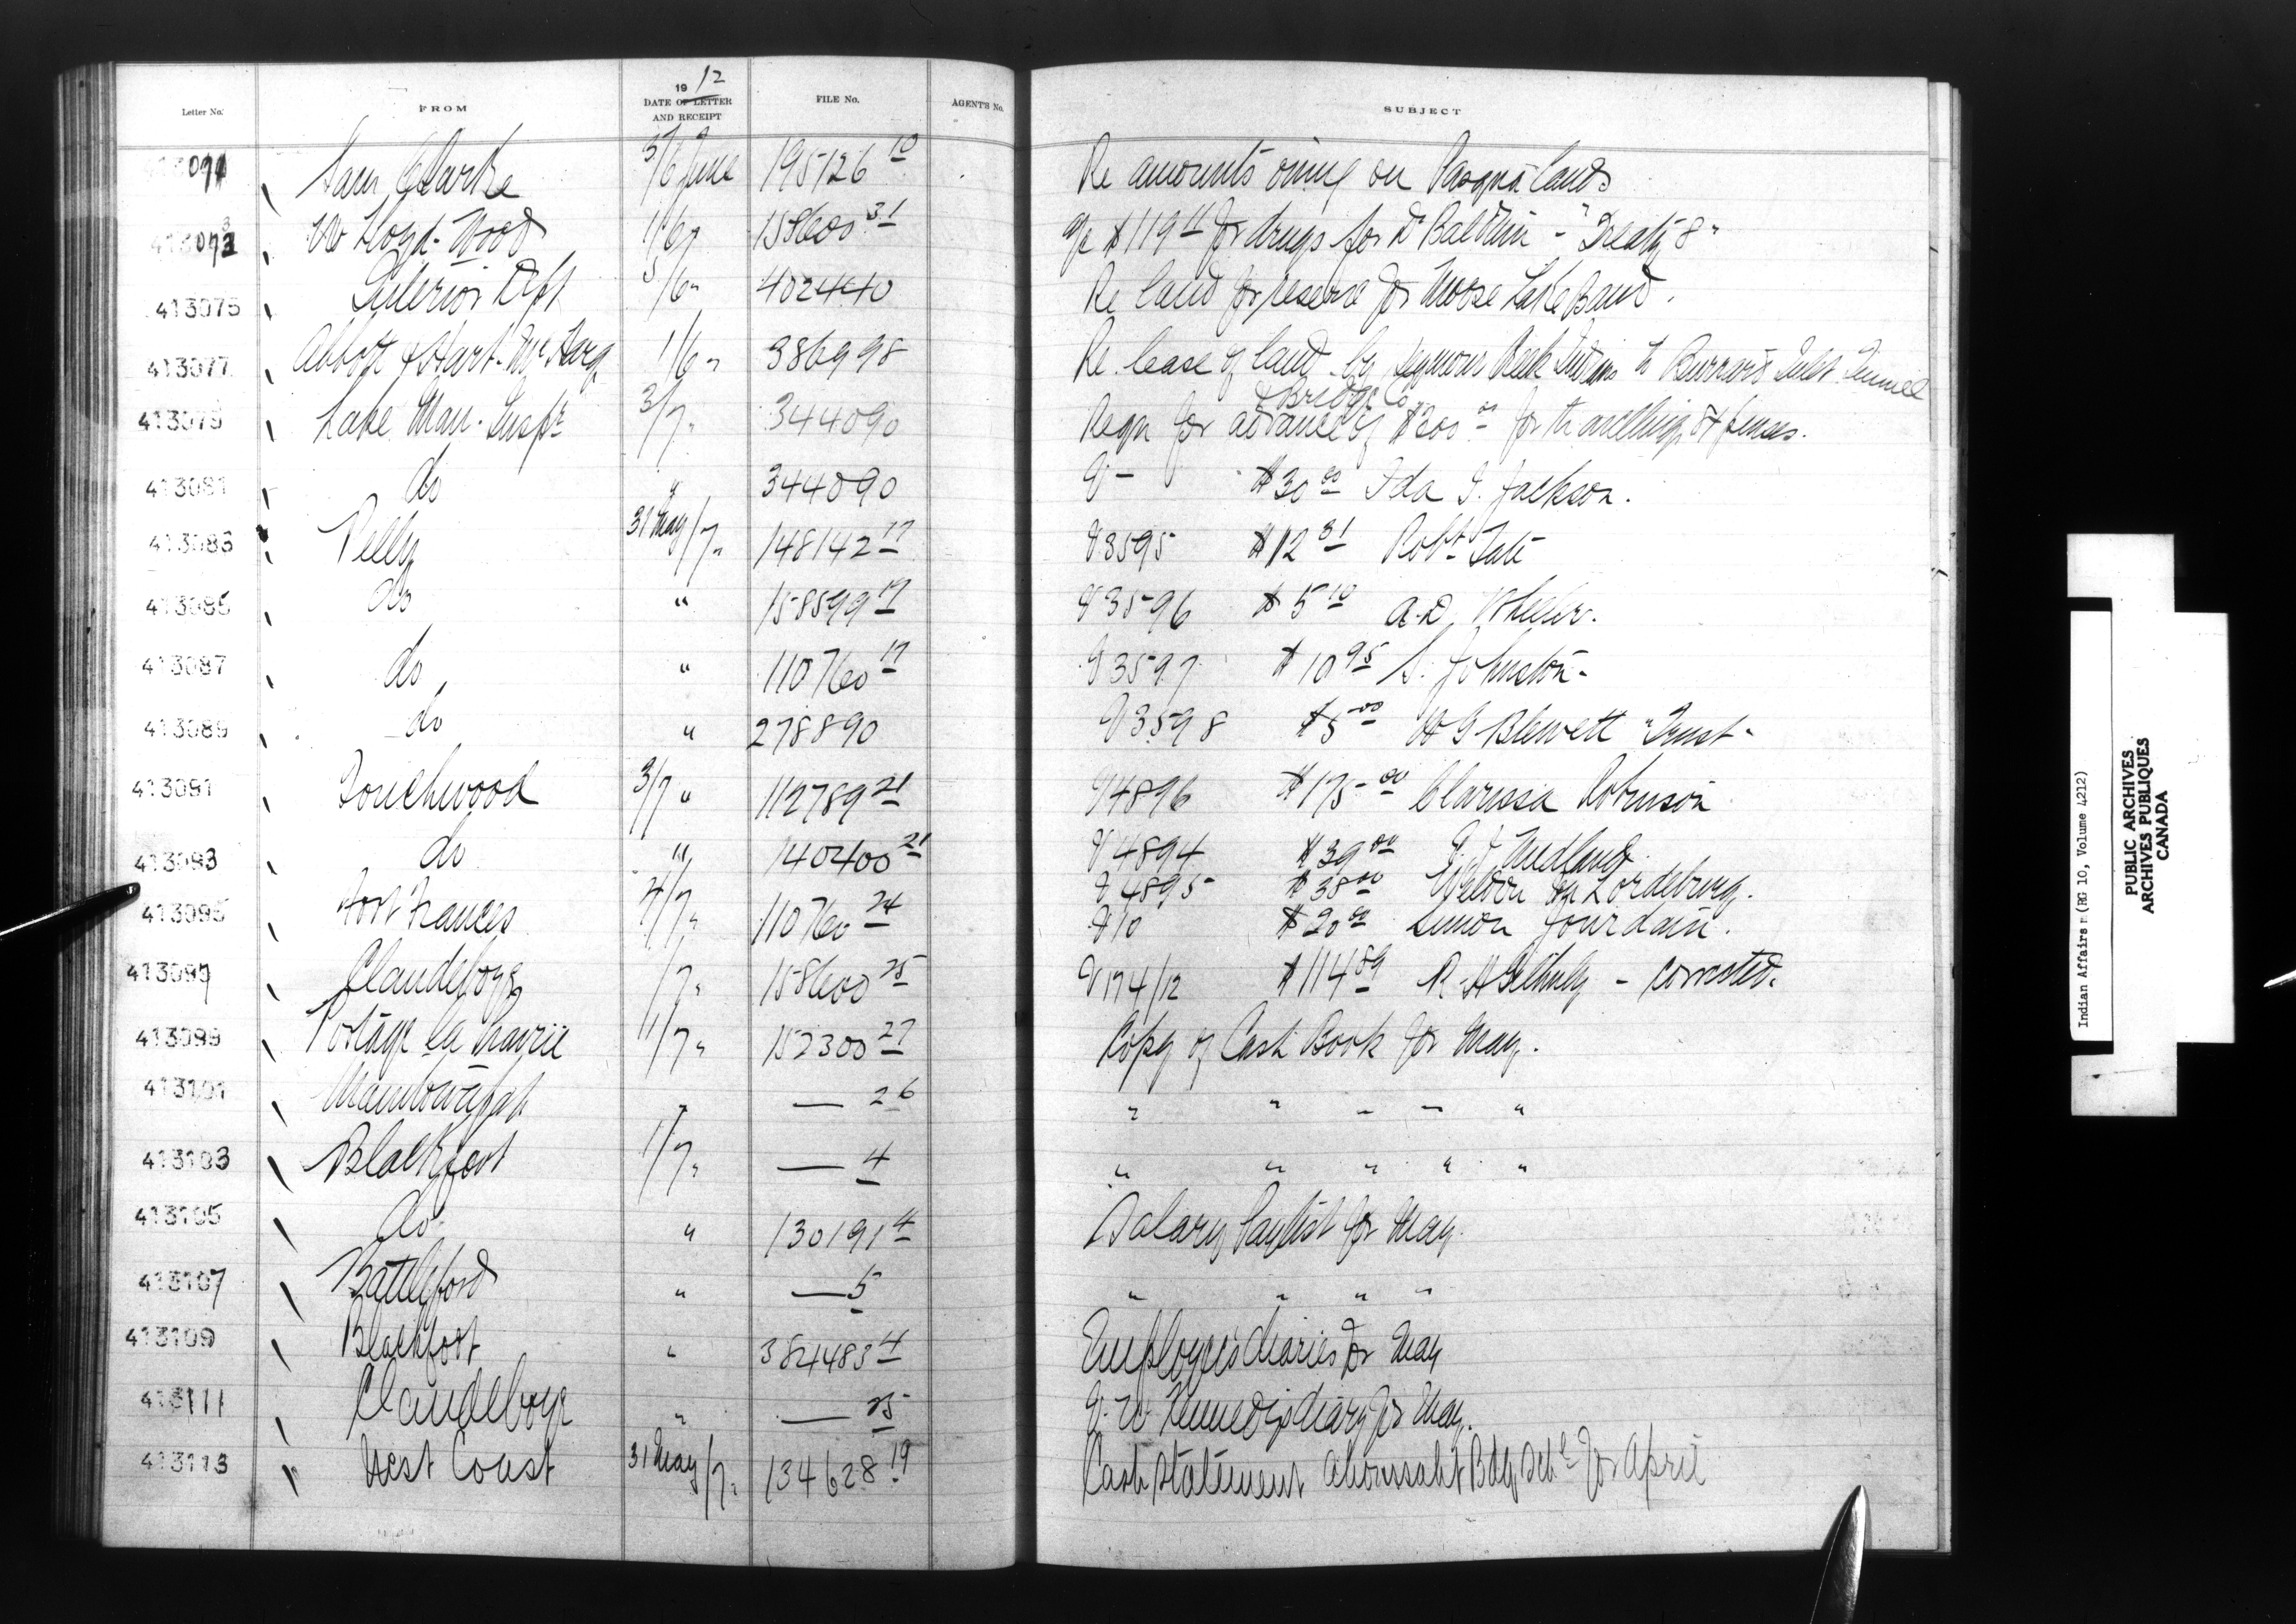 19 12
Letter No. FROM DATE OF LETTER AND RECEIPT FILE No. AGENT'S No. SUBJECT
413071 Sam Clarke 3/6 June 195126 10 Re amounts owing on Pasqua lands
413073 W Lloyd-Wood 1/6 " 158600 31 a/c $119 for drugs for Dr Baldwin - "Treaty 8"
413075 Interior Dept 5/6 " 402440 Re land for reserve for Moose Lake Band.
413077 Abbott & Hart-McHarg 1/6 " 386998 Re. lease of land by Seymour Creek Indians to Burrard Inlet Tunnel
& Bridge Co.
413079 Lake Man. Inspr 3/7 " 344090 Reqn for advance of $200 00 for travelling expenses.
413081 do " 344090 V - $30 00 Ida G. Jackson.
413083 Pelly 31 May/7 " 148142 17 V 3595 $12 31 Robt Tate
413085 do " 158599 17 V 3596 $5 10 A.D. Wheeler.
413087 do " 110760 17 V 3597 $10 95 S. Johnston.
413089 do " 278890 V 3598 $5 00 W G Blewett "Trust"
413091 Touchwood 3/7 " 112789 21 V 4896 $175 00 Clarissa Robinson
413093 do " 140400 21 V 4894 $39 00
V 4895 $38 00
413095 Fort Frances 4/7 " 110760 24 V 10 $20 00 Simon Jourdain.
413097 Clandeboye /7 " 158600 25 V 174/12 $114 89 R. - corrected.
413099 Portage la Prairie 1/7 " 152300 27 Copy of Cash Book for May.
413101 Manitowapah " — 26 " " " " "
413103 Blackfoot 1/7 " — 4 " " " " "
413105 do " 130191 4 Salary Paylist for May.
413107 Battleford " — 5 " " " "
413109 Blackfoot " 384483 4 Employees diaries for May
413111 Clandeboye " — 25 Kennedy's diary for May.
413113 West Coast 31 May/7 " 134628 19 Cash statement Ahoussaht Bdg Schl for April
Indian Affairs (RG 10, Volume 4212)
PUBLIC ARCHIVES
ARCHIVES PUBLIQUES
CANADA